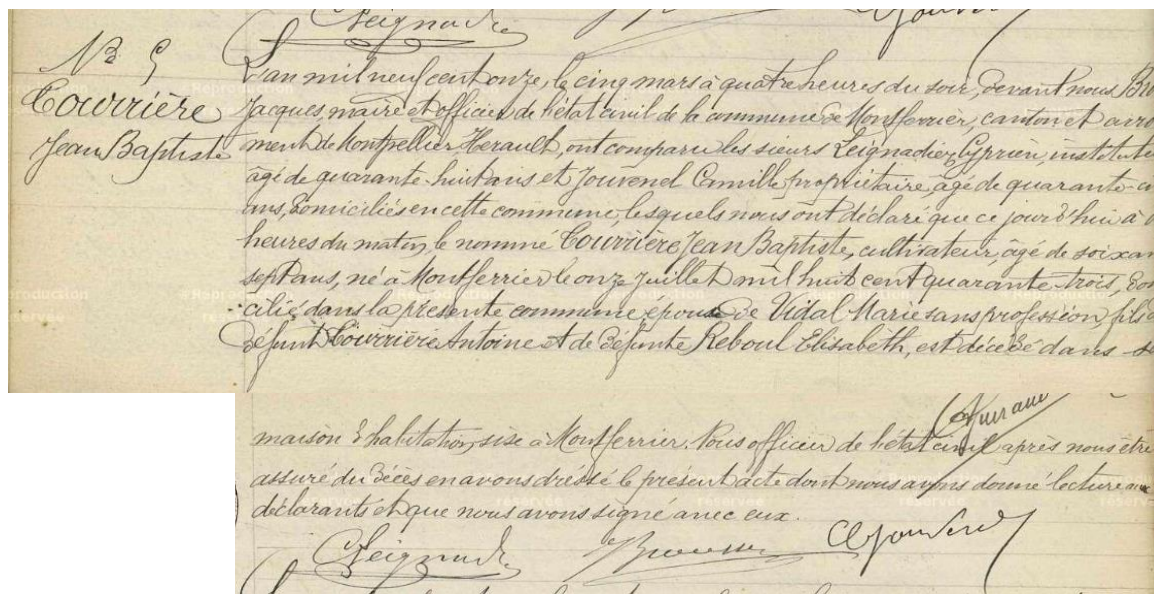 Nº 5
Courrière
Jean Baptiste
L'an mil neuf cent onze, le cinq mars à quatre heures du soir, devant nous
Jacques, maire et officier de l'état civil de la commune de Montferrier, canton et arro
ment de Montpellier Herault, ont comparu les sieurs Leignadier Cyprien, institute
âgé de quarante-huit ans et Jouvenel Camille propriétaire, âgé de quarante-
ans, domiciliés en cette commune, lesquels nous ont déclaré que ce jourd'hui à
heures du matin, le nommé Courrière Jean Baptiste, cultivateur, âgé de soixan
sept ans, né à Montferrier le onze juillet mil huit cent quarante-trois, dom
cilié dans la présente commune époux de Vidal Marie sans profession, fils d
défunt Courrière Antoine et de défunte Reboul Elisabeth, est décédé dans s
maison d'habitation, sise à Montferrier. Nous officier de l'état civil après nous être
assuré du décès en avons dréssé le présent acte dont nous avons donné lecture aux
déclarants et que nous avons signé avec eux.